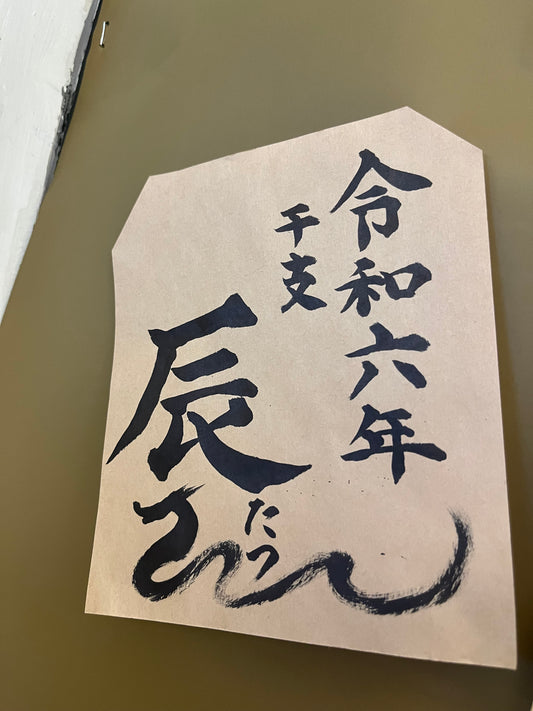 令和六年
干支
辰
たつ